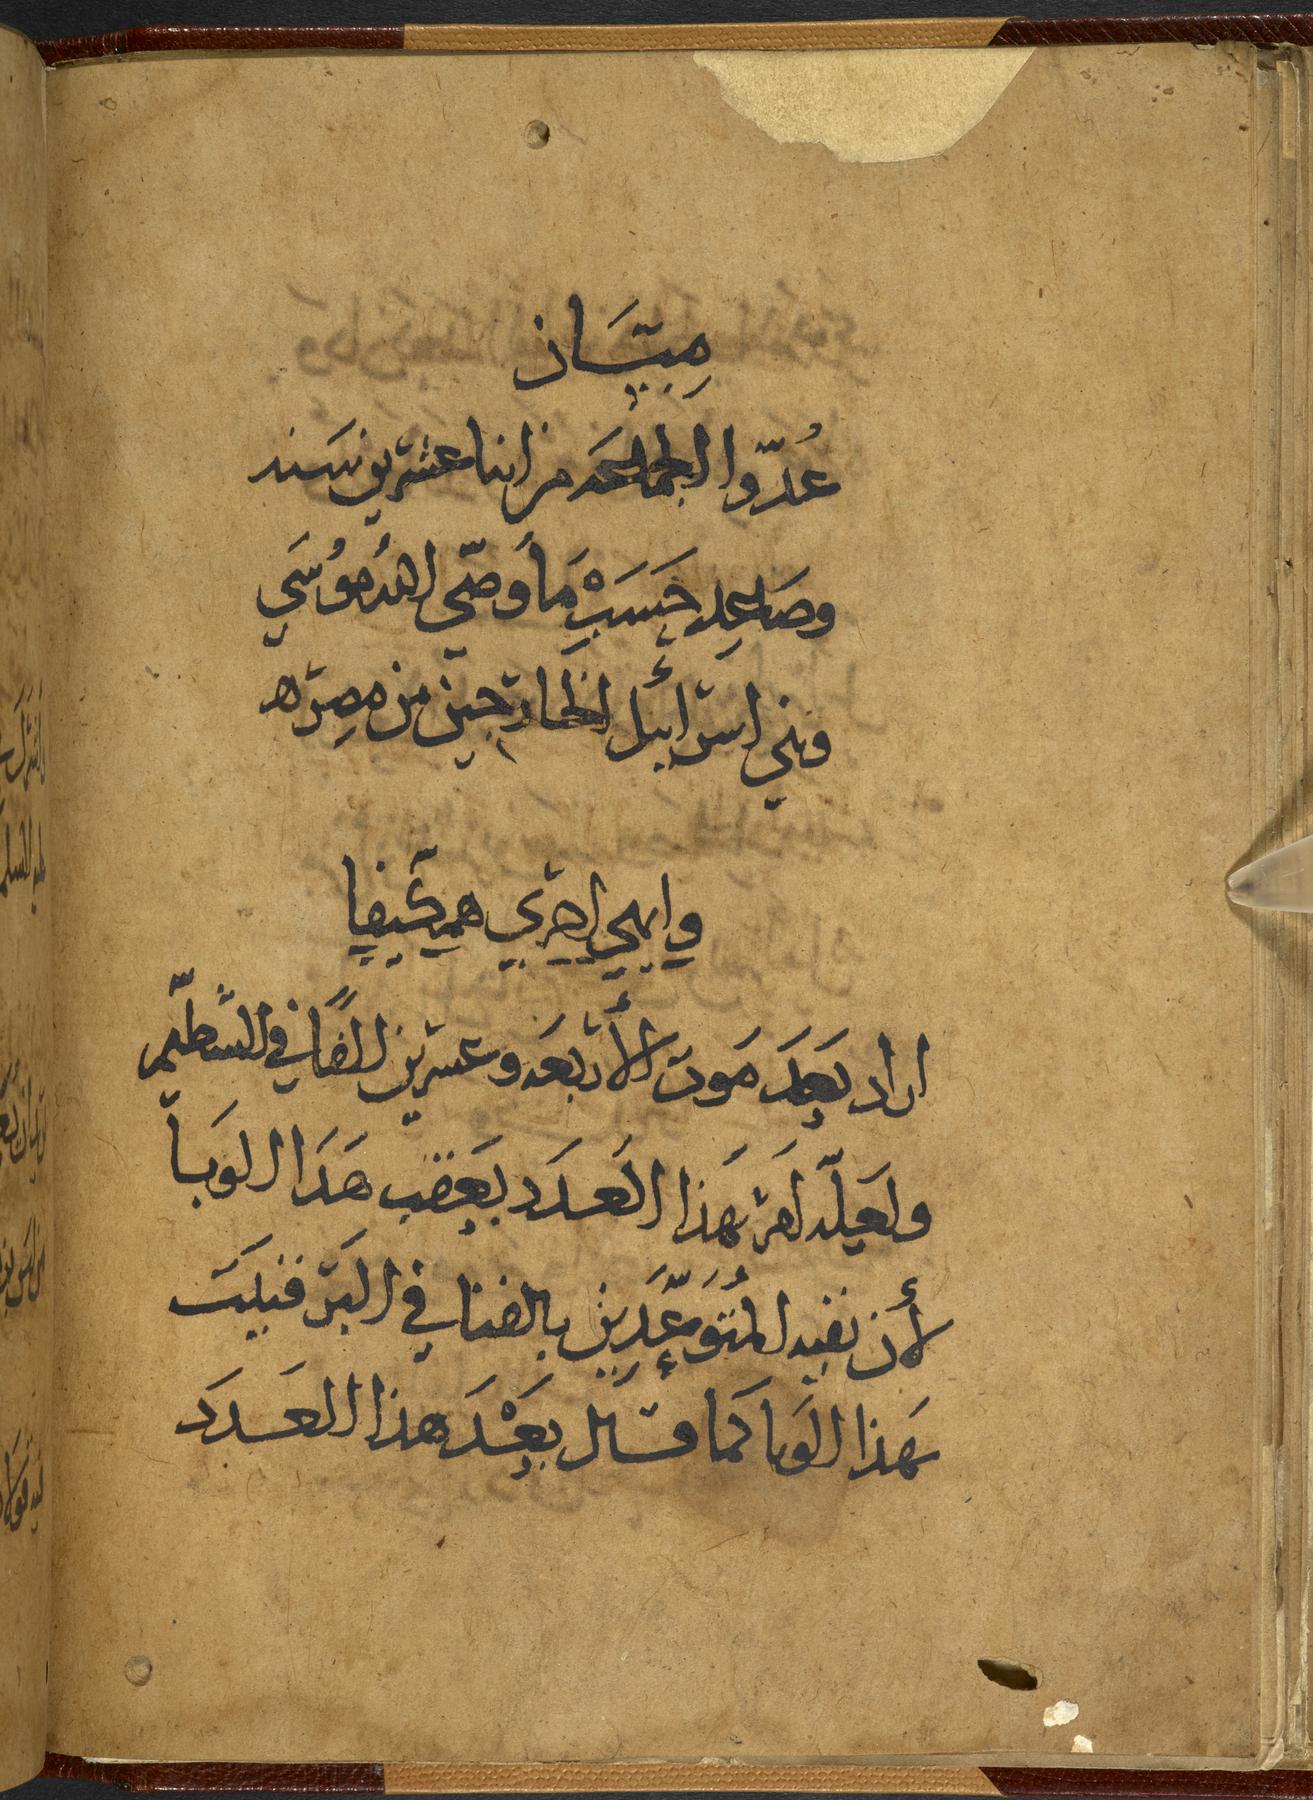 مِيّتَان
عُدّوا الجماعَه من ابنا عشرين سَنه
وصَاعِد حَسَبْ مَا وصّى اللهُ مُوسَى
وبني اسرَائيل الخارجين من مِصرَه
ويهي احري همكيفا
اراد بَعدَ مَوت الأربَعَه وعشرين الفًا في الشّطيّم
ولعَلّه امَر بهَذا العَدَد بعَقب هَذَا الوَبَا
لأن نفيه المُتوَعّدِين بالفنا في البَر فنيَت
بهَذا الوَبا كمَا قال بَعْدَ هذا العَدَد